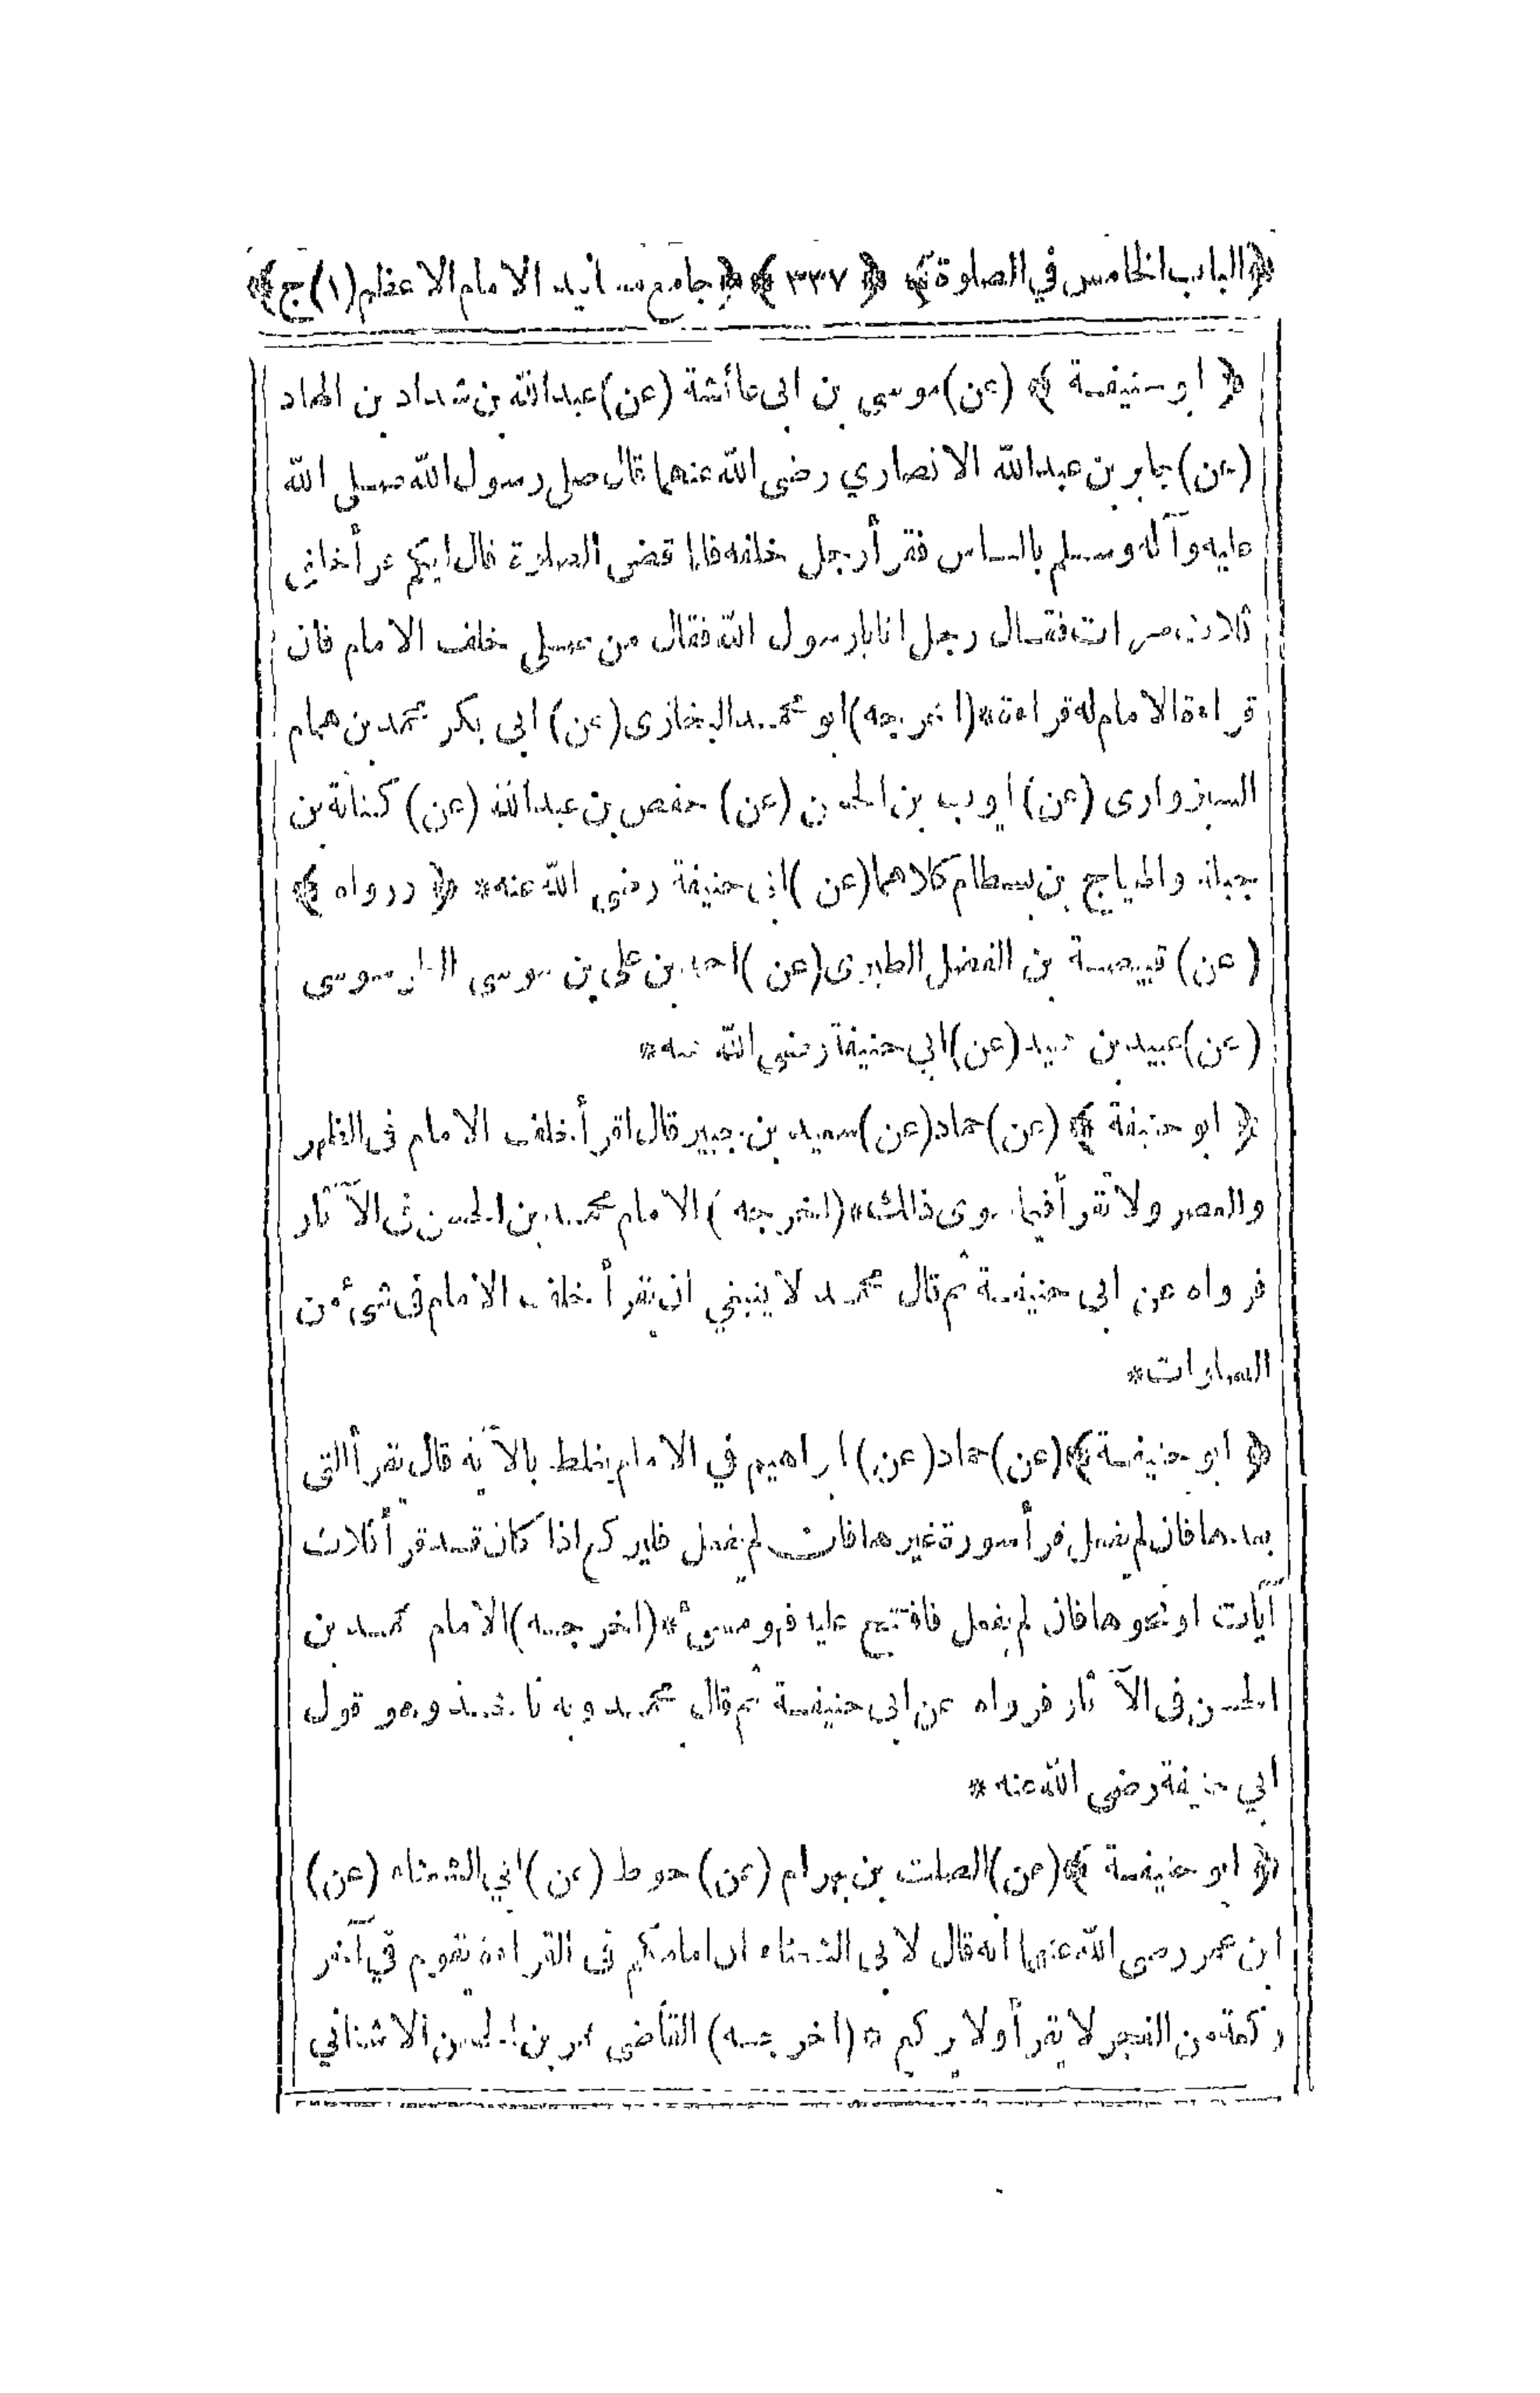 ﴿الباب الخامس في الصلوة﴾ ﴿٣٣٧﴾ ﴿جامع مسانيد الامام الاعظم (١) ج﴾
﴿ ابو حنيفة ﴾ (عن) موسى بن ابى عائشة (عن) عبدالله بن شداد بن الهاد
(عن) جابر بن عبدالله الانصاري رضى الله عنهما قال صلى رسول الله صلى الله
عليه وآله وسلم بالناس فقرأ رجل خلفه فلما قضى الصلوة قال ايكم قرأ خلفى
ثلاث مرات فقال رجل انا يارسول الله فقال من صلى خلف الامام فان
قراءة الامام له قراءة* (اخرجه) ابو محمد البخارى (عن) ابى بكر محمد بن همام
السبزوارى (عن) ايوب بن الحسن (عن) حفص بن عبدالله (عن) كنانة بن
جبلة والهياج بن بسطام كلاهما (عن) ابى حنيفة رضى الله عنه* ﴿ ورواه ﴾
(عن) قبيصة بن الفضل الطبرى (عن) احمد بن على بن موسى
(عن) عبيد بن (عن) ابى حنيفة رضى الله عنه*
﴿ ابو حنيفة ﴾ (عن) حماد (عن) سعيد بن جبير قال اقرأ خلف الامام فى الظهر
والعصر ولا تقرأ فيما سوى ذلك* (اخرجه) الامام محمد بن الحسن فى الآثار
فرواه عن ابى حنيفة ثم قال محمد لا ينبغي ان تقرأ خلف الامام فى شئ من
الصلوات*
﴿ ابو حنيفة ﴾ (عن) حماد (عن) ابراهيم في الامام يغلط بالآية قال يقرأ التى
بعدها فان لم يفعل قرأ سورة غيرها فان لم يفعل فليركع اذا كان قد قرأ ثلاث
آيات او نحوها فان لم يفعل فافتتح عليه فهو مسئ* (اخرجه) الامام محمد بن
الحسن فى الآثار فرواه عن ابى حنيفة ثم قال محمد وبه نأخذ وهو قول
ابي حنيفة رضى الله عنه *
﴿ ابو حنيفة ﴾ (عن) الصلت بن بهرام (عن) حوط (عن) ابي الشعثاء (عن)
ابن عمر رضى الله عنهما انه قال لابى الشعثاء ان امامكم فى القراءة يقوم في آخر
ركعة من الفجر لا يقرأ ولا يركع * (اخرجه) القاضى عمر بن الحسن الاشناني